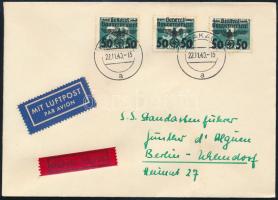 General
Gouvernement
50 50
General
Gouvernement
50 50
General
Gouvernement
50 50
22.11.40.-15
a
22.11.40.-15
a
MIT LUFTPOST
PAR AVION
S.S. Standartenführer
Günther d'Alquen
Berlin-
Heimat 27